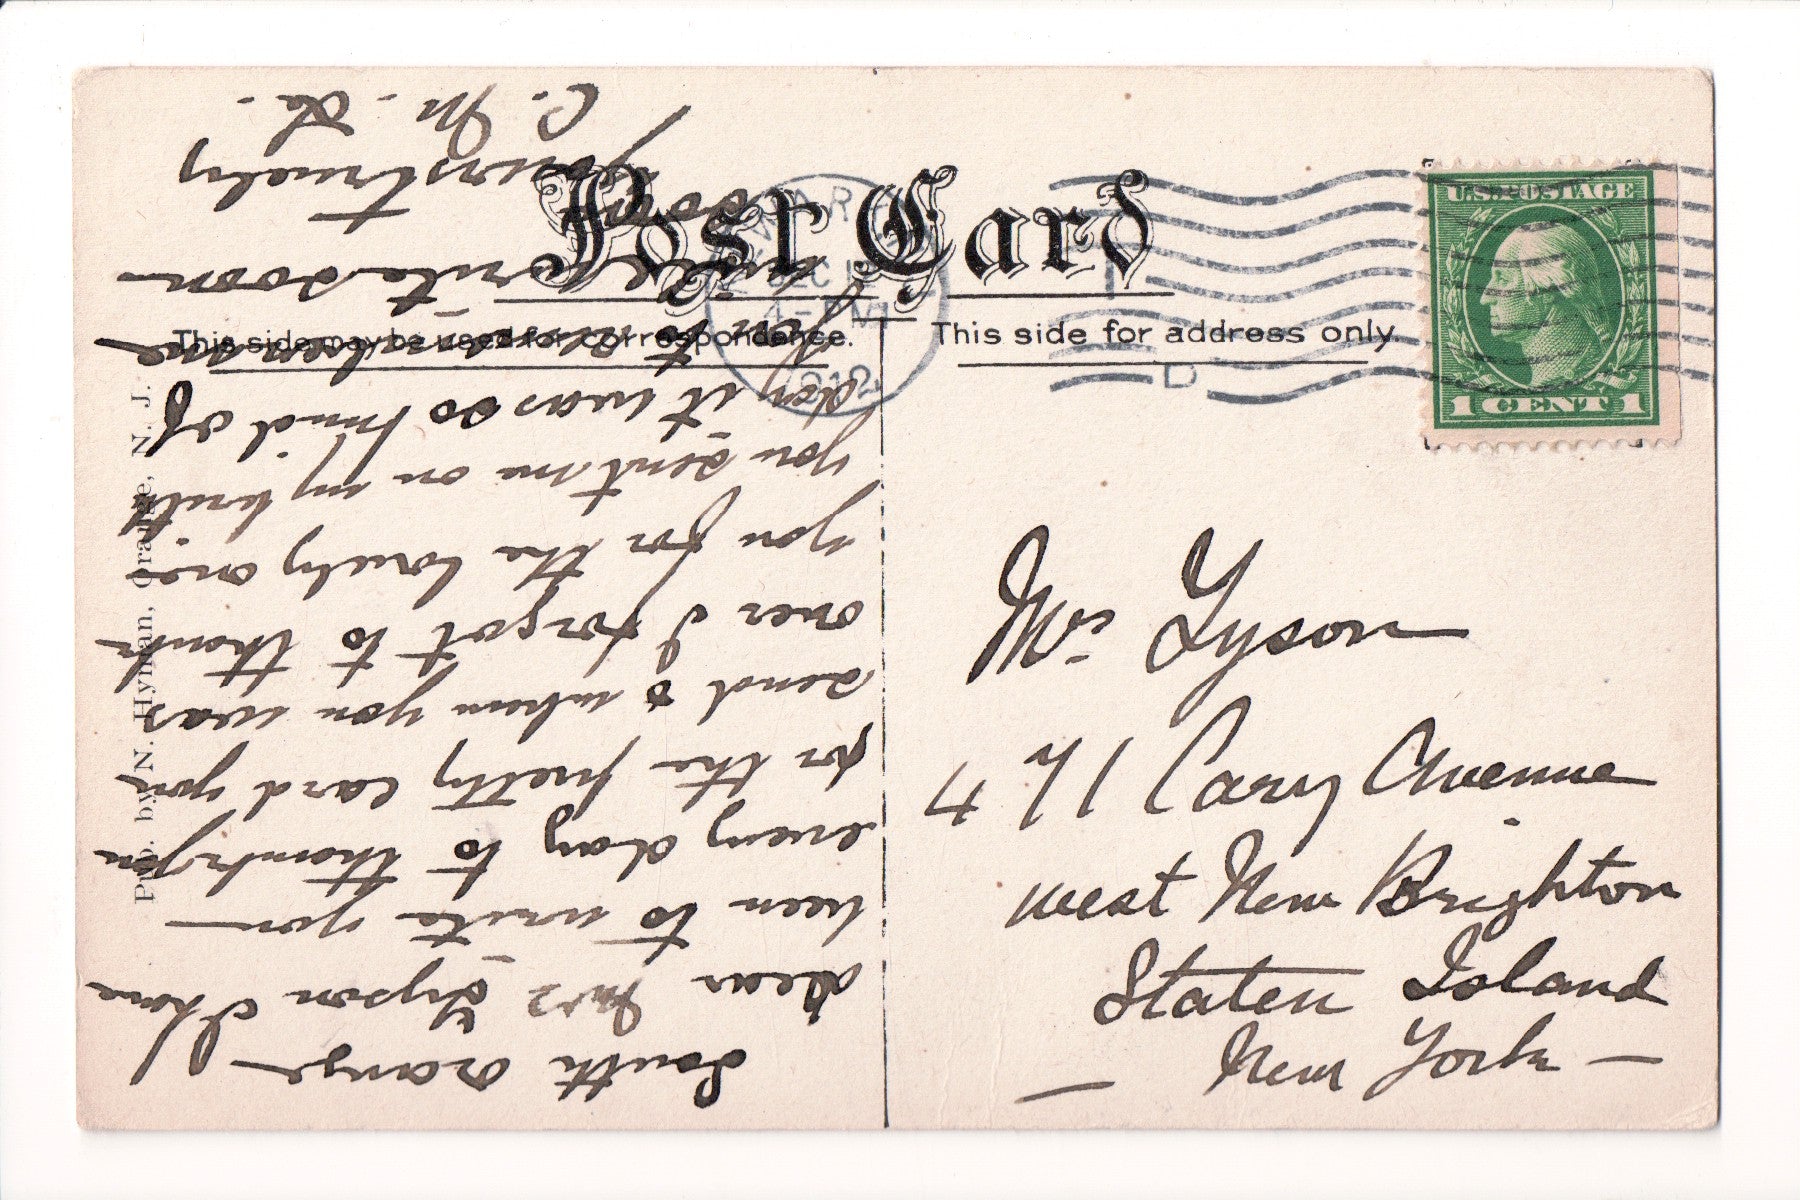 Post Card
This side may be used for correspondence.
This side for address only.
U.S. POSTAGE
1 CENT 1
DEC
1912
D
Pub. by N. Hyman, Orange, N. J.
Mrs Tyson
471 Cary Avenue
West New Brighton
Staten Island
New York
South Orange
Dear Mrs Tyson I have
been to write you
every day to thank you
for the pretty card you
send & when you was
over I forgot to thank
you for the lovely one
you sent me on my birth
day it was so kind of
you to remember me
will write soon
yours truly
C. M. L.